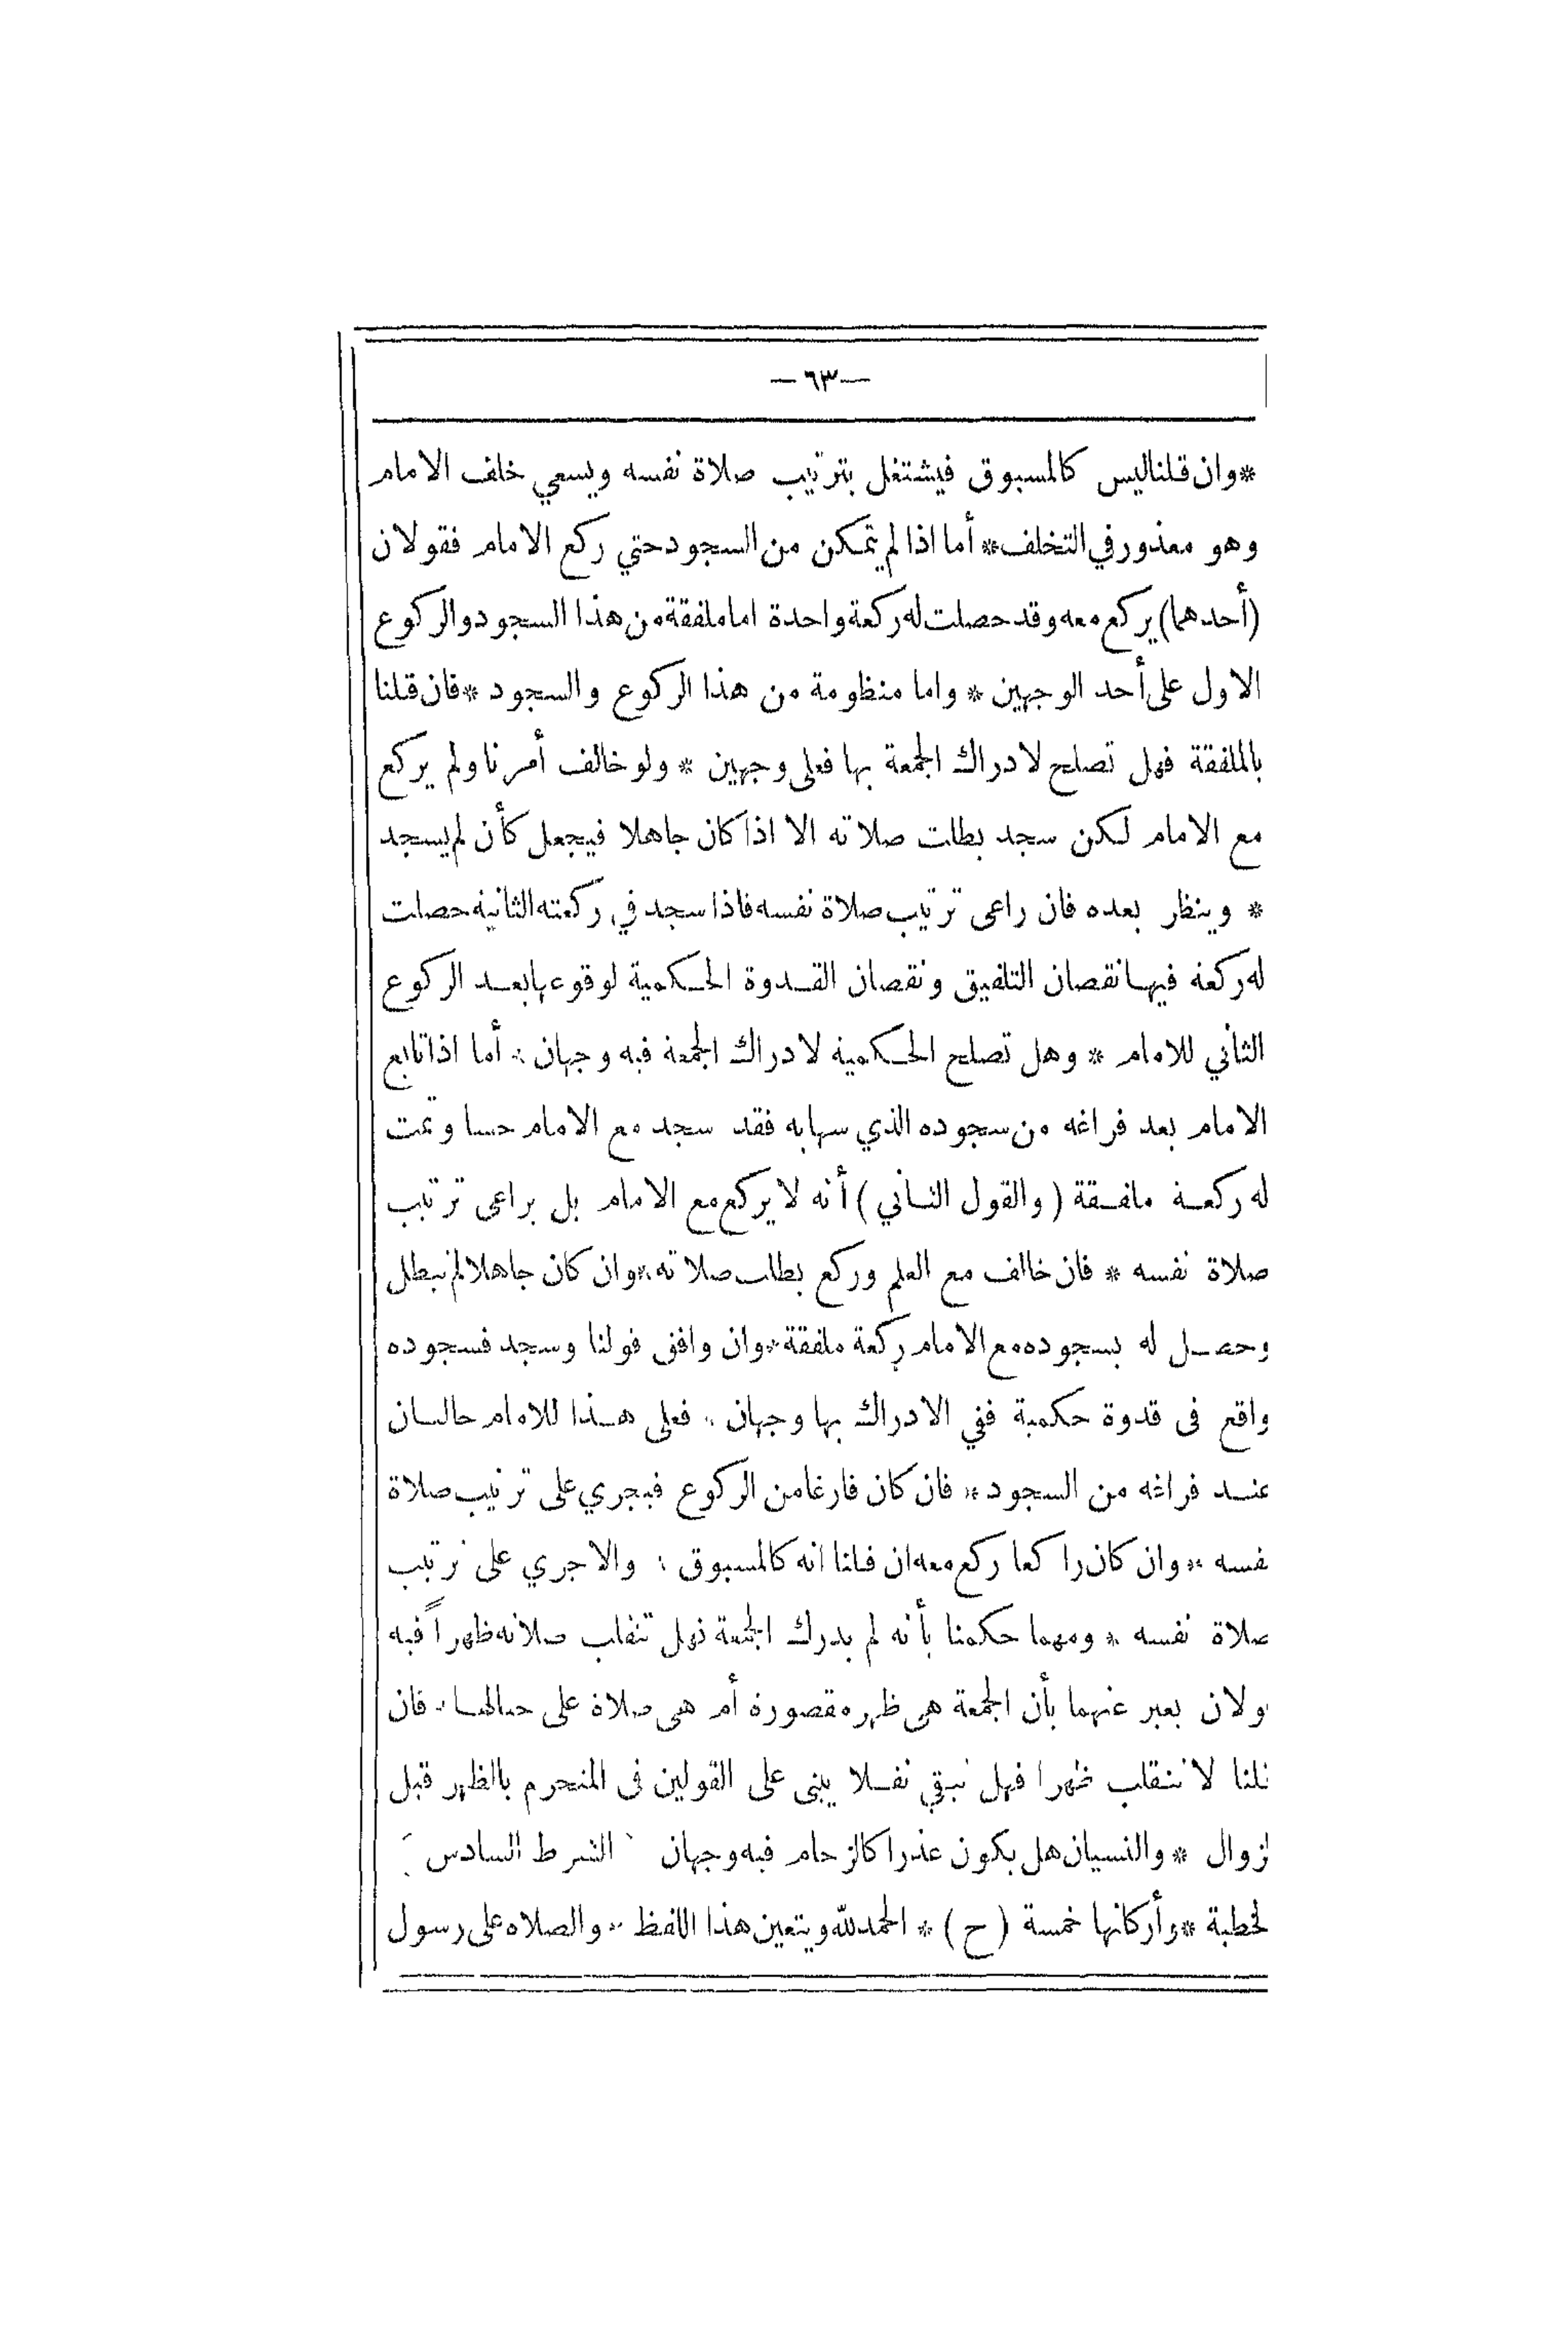 — ٦٣ —
*وان قلنا ليس كالمسبوق فيشتغل بترتيب صلاة نفسه ويسعي خلف الامام
وهو معذور في التخلف* أما اذا لم يتمكن من السجود حتي ركع الامام فقولان
(أحدهما) يركع معه وقد حصلت له ركعة واحدة اما ملفقة من هذا السجود والركوع
الاول على أحد الوجهين * واما منظومة من هذا الركوع والسجود *فان قلنا
بالملفقة فهل تصلح لادراك الجمعة بها فعلى وجهين * ولو خالف أمرنا ولم يركع
مع الامام لكن سجد بطلت صلاته الا اذا كان جاهلا فيجعل كأن لم يسجد
* وينظر بعده فان راعى ترتيب صلاة نفسه فاذا سجد في ركعته الثانية حصلت
له ركعة فيها نقصان التلفيق ونقصان القدوة الحكمية لوقوعها بعد الركوع
الثاني للامام * وهل تصلح الحكمية لادراك الجمعة فيه وجهان * أما اذا تابع
الامام بعد فراغه من سجوده الذي سها به فقد سجد مع الامام حسا وتمت
له ركعة ملفقة (والقول الثاني) أنه لا يركع مع الامام بل يراعى ترتيب
صلاة نفسه * فان خالف مع العلم وركع بطلت صلاته *وان كان جاهلا لم تبطل
وحصل له بسجوده مع الامام ركعة ملفقة *وان وافق قولنا وسجد فسجوده
واقع فى قدوة حكمية ففي الادراك بها وجهان * فعلى هذا للامام حالتان
عند فراغه من السجود * فان كان فارغا من الركوع فيجري على ترتيب صلاة
نفسه * وان كان راكعا ركع معه ان قلنا انه كالمسبوق * والا جري على ترتيب
صلاة نفسه * ومهما حكمنا بأنه لم يدرك الجمعة فهل تنقلب صلاته ظهراً فيه
قولان يعبر عنهما بأن الجمعة هى ظهر مقصورة أم هى صلاة على حيالها * فان
قلنا لا تنقلب ظهرا فهل تبقي نفلا يبنى على القولين فى المتحرم بالظهر قبل
الزوال * والنسيان هل يكون عذرا كالزحام فيه وجهان ( الشرط السادس )
الخطبة * وأركانها خمسة (ح) * الحمد لله ويتعين هذا اللفظ * والصلاه على رسول